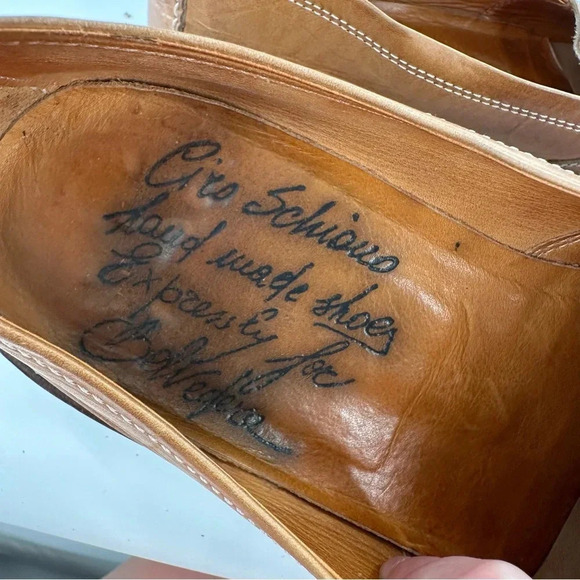 Ciro Schiano
hand made shoes
Expressly for
BelVedere